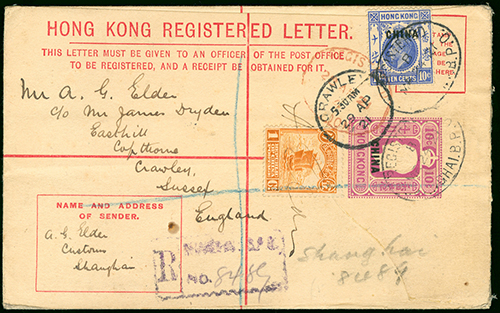 HONG KONG REGISTERED LETTER.
THIS LETTER MUST BE GIVEN TO AN OFFICER OF THE POST OFFICE
TO BE REGISTERED, AND A RECEIPT BE OBTAINED FOR IT.
HONG KONG
CHINA
TEN CENTS 10c
AGE
HERE.
Mr A. G. Elder
c/o Mr James Dryden
Easthill
Copthorne
Crawley,
Sussex
England
CRAWLEY
5.30 AM
29 AP
21
10c 10c
HONGKONG
CHINA
NAME AND ADDRESS
OF SENDER.
A. G. Elder
Customs
Shanghai
R
NO. 8489
Shanghai
8489